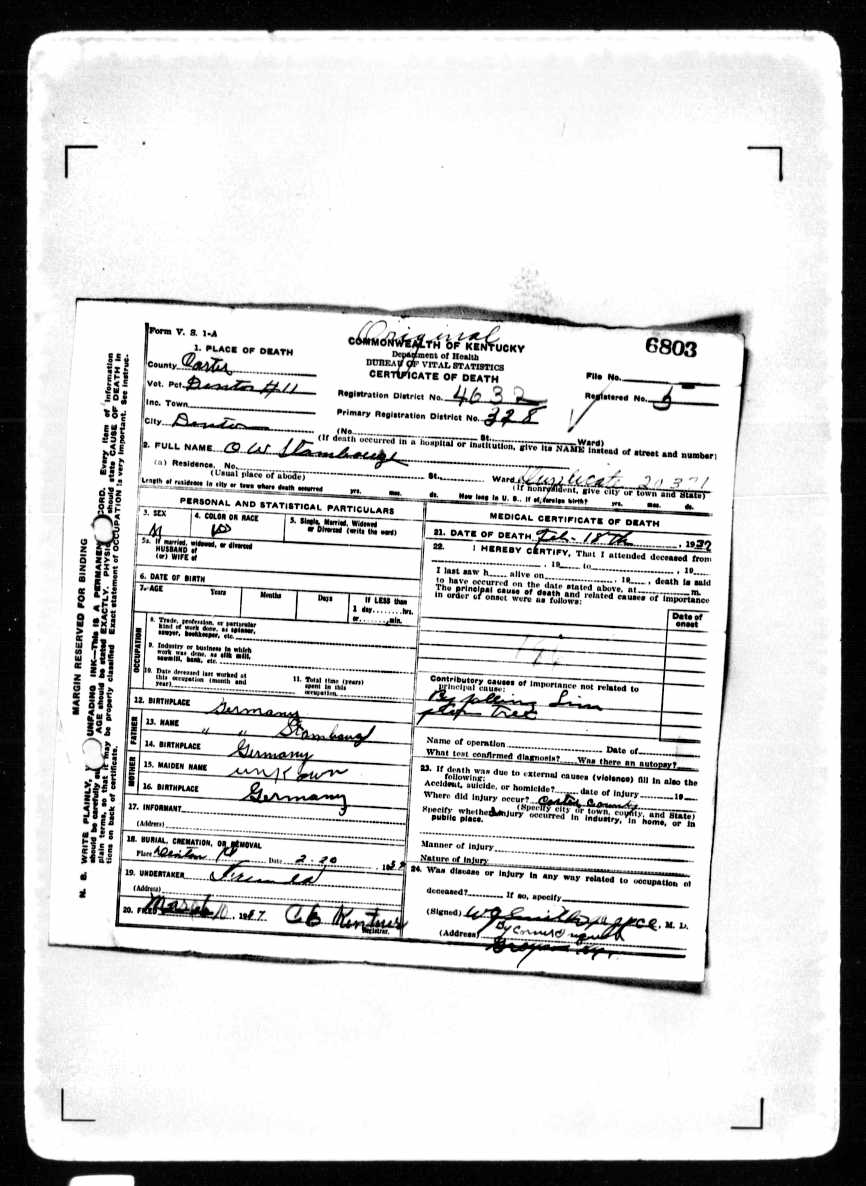 Form V. S. 1-A
Original
6803
1. PLACE OF DEATH
COMMONWEALTH OF KENTUCKY
Department of Health
BUREAU OF VITAL STATISTICS
CERTIFICATE OF DEATH
County Carter
File No.
Vot. Pct. Denton #11
Registration District No. 4632
Registered No. 5
Inc. Town
Primary Registration District No. 328
City Denton
(No. St. Ward)
(If death occurred in a hospital or institution, give its NAME instead of street and number)
2. FULL NAME O W Stambough
(a) Residence. No. St. Ward Duplicate
(Usual place of abode) (If nonresident, give city or town and State)
Length of residence in city or town where death occurred yrs. mos. ds. How long in U. S., if of foreign birth? yrs. mos. ds.
PERSONAL AND STATISTICAL PARTICULARS
3. SEX
M
4. COLOR OR RACE
W
5. Single, Married, Widowed
or Divorced (write the word)
5a. If married, widowed, or divorced
HUSBAND of
(or) WIFE of
6. DATE OF BIRTH
7. AGE Years Months Days If LESS than
1 day hrs.
or min.
OCCUPATION
8. Trade, profession, or particular
kind of work done, as spinner,
sawyer, bookkeeper, etc.
9. Industry or business in which
work was done, as silk mill,
sawmill, bank, etc.
10. Date deceased last worked at
this occupation (month and
year)
11. Total time (years)
spent in this
occupation
12. BIRTHPLACE Germany
FATHER
13. NAME " " Stambough
14. BIRTHPLACE Germany
MOTHER
15. MAIDEN NAME unknown
16. BIRTHPLACE Germany
17. INFORMANT
(Address)
18. BURIAL, CREMATION, OR REMOVAL
Place Denton Ky Date 2-20, 1937
19. UNDERTAKER Friends
(Address)
20. FILED March 10, 1937 Registrar.
MEDICAL CERTIFICATE OF DEATH
21. DATE OF DEATH Feb. 18th, 1937
22. I HEREBY CERTIFY, That I attended deceased from
, 19 to , 19
I last saw h alive on , 19 , death is said
to have occurred on the date stated above, at m.
The principal cause of death and related causes of importance
in order of onset were as follows:
Date of
onset
Contributory causes of importance not related to
principal cause:
By falling
Tree
Name of operation Date of
What test confirmed diagnosis? Was there an autopsy?
23. If death was due to external causes (violence) fill in also the
following:
Accident, suicide, or homicide? date of injury 19
Where did injury occur? Carter County
(Specify city or town, county, and State)
Specify whether injury occurred in industry, in home, or in
public place.
Manner of injury
Nature of injury
24. Was disease or injury in any way related to occupation of
deceased? If so, specify
(Signed) , M. D.
(Address) Grayson Ky.
MARGIN RESERVED FOR BINDING